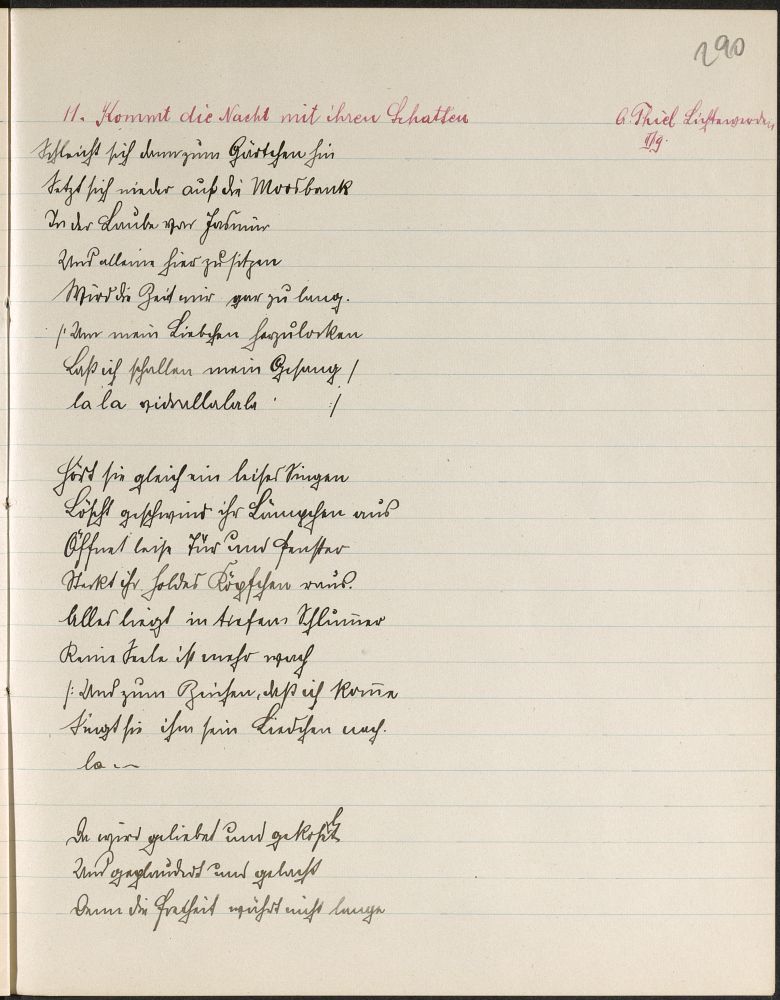 290
11. Kommt die Nacht mit ihren Schatten
A. Thiel Lichtewerden
Schleicht sich dann zum Gärtchen hin
Setzt sich nieder auf die Moosbank
In der Laube von Jasmin
Und alleine hier zu sitzen
Wird die Zeit mir gar zu lang.
/: Um mein Liebchen herzulocken
Laß ich schallen mein Gesang /
la la viderallalala :/
Hört sie gleich ein leises Singen
Löscht geschwind ihr Lämpchen aus
Öffnet leise Tür und Fenster
Steckt ihr holdes Köpfchen raus.
Alles liegt in tiefem Schlum̅er
Keine Seele ist mehr wach
/: Und zum Zeichen, daß ich kom̅e
Singt sie ihm sein Liedchen nach.
la
Da wird geliebet und gekost
Und geplaudert und gelacht
Denn die Freiheit währt nicht lange